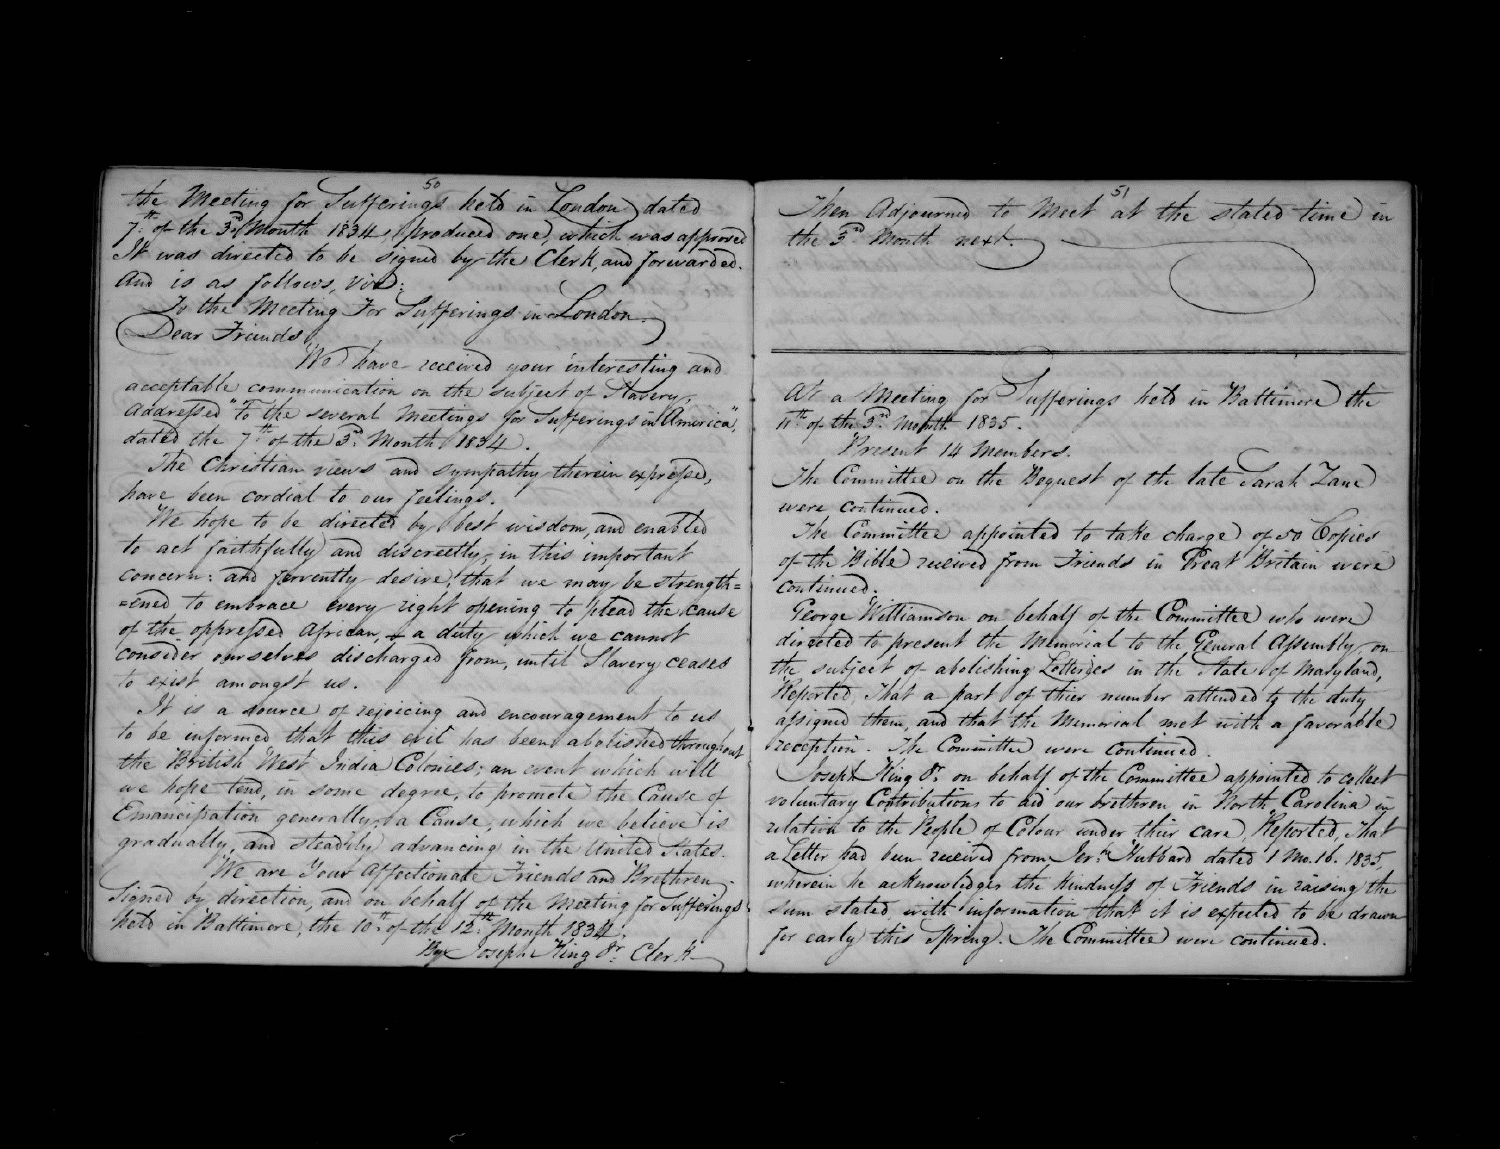 50
the Meeting for Sufferings held in London dated
7th of the 3d Month 1834, produced one, which was approved
It was directed to be signed by the Clerk, and forwarded.
And is as follows, viz:
To the Meeting For Sufferings in London.
Dear Friends,
We have received your interesting and
acceptable communication on the subject of Slavery,
addressed "To the several Meetings for Sufferings in America",
dated the 7th of the 3d. Month 1834.
The Christian views and sympathy therein expressed,
have been cordial to our feelings.
We hope to be directed by best wisdom, and enabled
to act faithfully and discreetly, in this important
concern: and fervently desire, that we may be strength=
=ened to embrace every right opening to plead the cause
of the oppressed African, – a duty which we cannot
consider ourselves discharged from, until Slavery ceases
to exist amongst us.
It is a source of rejoicing and encouragement to us
to be informed that this evil has been abolished throughout
the British West India Colonies; an event which will
we hope tend, in some degree, to promote the Cause of
Emancipation generally; a Cause, which we believe is
gradually, and steadily advancing in the United States.
We are Your Affectionate Friends and Brethren
Signed by direction, and on behalf of the Meeting for Sufferings
held in Baltimore, the 10th of the 12th Month 1834.
By Joseph King Jr. Clerk
51
Then Adjourned to Meet at the stated time in
the 3rd Month next.
At a Meeting for Sufferings held in Baltimore the
11th of the 3rd Month 1835.
Present 14 Members.
The Committee on the Bequest of the late Sarah Zane
were continued.
The Committee appointed to take charge of 50 Copies
of the Bible received from Friends in Great Britain were
continued.
George Williamson on behalf of the Committee who were
directed to present the Memorial to the General Assembly, on
the subject of abolishing Lotteries in the State of Maryland,
Reported That a part of thier number attended to the duty
assigned them, and that the Memorial met with a favorable
reception. The Committee were continued.
Joseph King Jr. on behalf of the Committee appointed to collect
voluntary Contributions to aid our brethren in North Carolina in
relation to the People of Colour under their care, Reported, That
a Letter had been received from Jer.h Hubbard dated 1 Mo. 16. 1835,
wherein he acknowledges the kindness of Friends in raising the
sum stated, with information that it is expected to be drawn
for early this Spring. The Committee were continued.